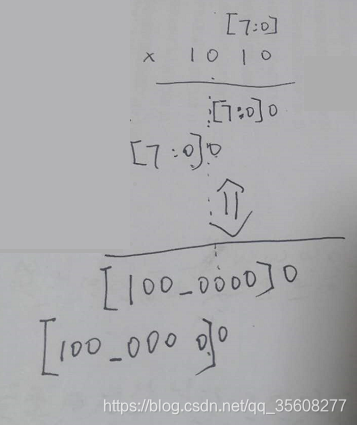 [7:0]
x 1010
[7:0]0
[7:0]0
[100_0000]0
[100_0000]0
https://blog.csdn.net/qq_35608277